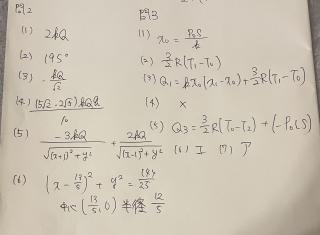 問2
(1) 2kQ
(2) 195°
(3) -kQ/√2
(4) (5√2-2√5)kQq/10
(5) -3kQ/√((x+1)²+y²) + 2kQ/√((x-1)²+y²)
(6) (x-13/5)²+y²=144/25
中心(13/5,0) 半径 12/5
問3
(1) x₀=P₀S/k
(2) 3/2R(T₁-T₀)
(3) Q₁=kx₀(x₁-x₀)+3/2R(T₁-T₀)
(4) ×
(5) Q3=3/2R(T₀-T₂)+(-P₀(S)
(6) エ (7) ア